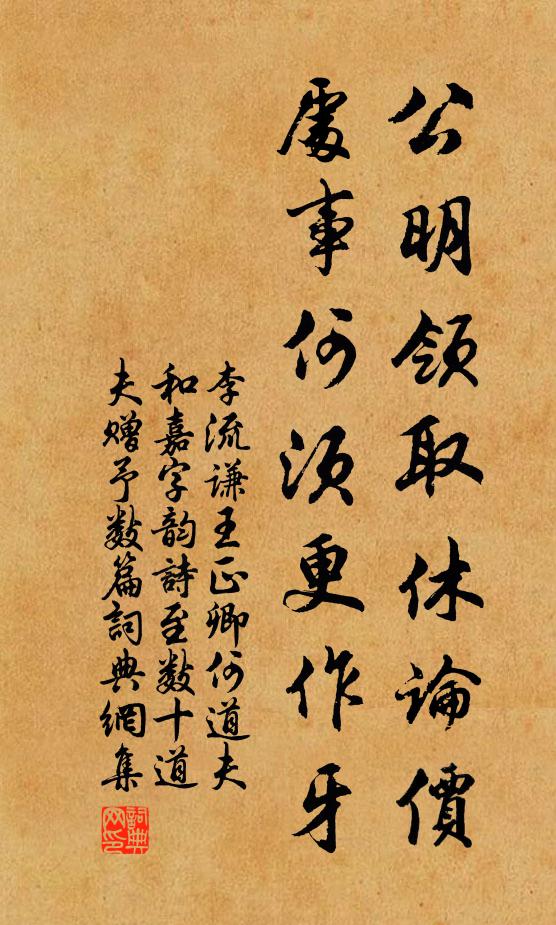 公明領取休論價
處事何須更作牙
李流謙王正卿何道夫
和嘉字韵詩至数十道
夫赠予数篇詞典網集
詞典网印